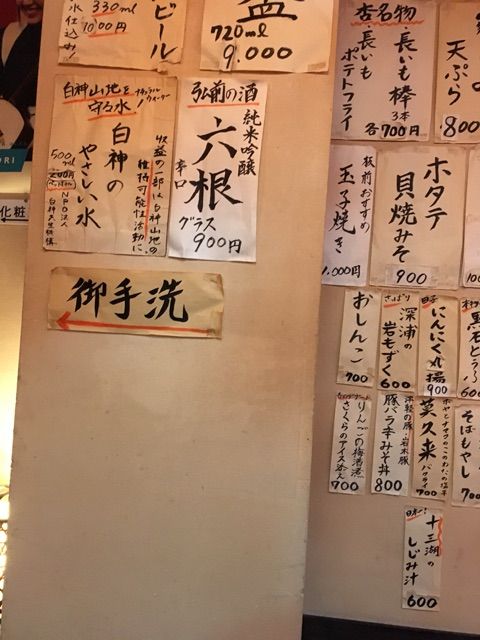 ビール
330ml
1000円
水仕込み!
盃
720ml
9.000
白神山地を
守る水!
ナチュラルウォーター
白神の
やさしい水
500ml
収益の一部は白神山地の
維持可能性活動に
NPO法人
弘前の酒
純米吟醸
六根
辛口
グラス
900円
御手洗
化粧
名物
長いも棒
3本
各700円
長いも
ポテトフライ
天ぷら
800
板前おすすめ
玉子焼き
1.000円
ホタテ
貝焼みそ
900
おしんこ
700
さっぱり
深浦の
岩もずく
600
田子
にんにく丸揚
900
黒石
600
りんごの梅酒煮
さくらのアイス添え
700
津軽の豚・岩木豚
豚バラ辛みそ丼
800
莫久来
バクライ
700
そばもやし
700
日本一!
十三湖の
しじみ汁
600